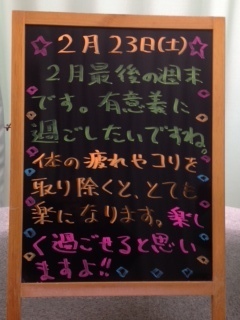 2月23日(土)
2月最後の週末
です。有意義に
過ごしたいですね。
体の疲れやコリを
取り除くと、とても
楽になります。楽し
く過ごせると思い
ますよ!!